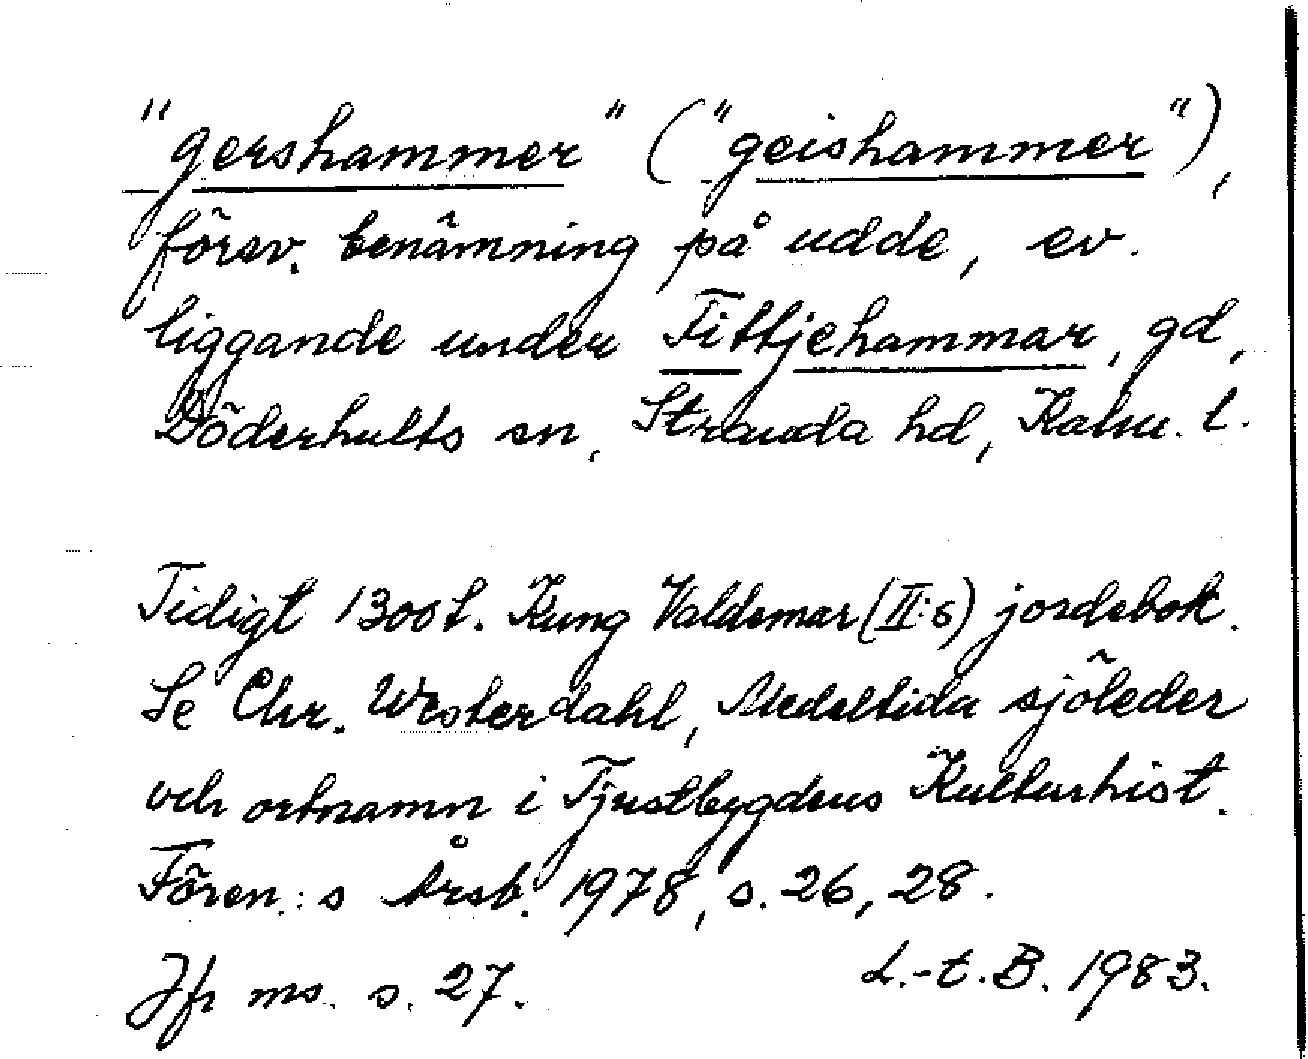 "gershammer" ("geishammer"),
försv. benämning på udde, ev.
liggande under Fittjehammar, gd,
Döderhults sn, Stranda hd, Kalm. l.
Tidigt 1300t. Kung Valdemar (II:s) jordebok.
Se Chr. Westerdahl, Medeltida sjöleder
och ortnamn i Tjustbygdens Kulturhist.
Fören:s Årsb. 1978, s. 26, 28.
Jfr ms. s. 27. L.-t. B. 1983.